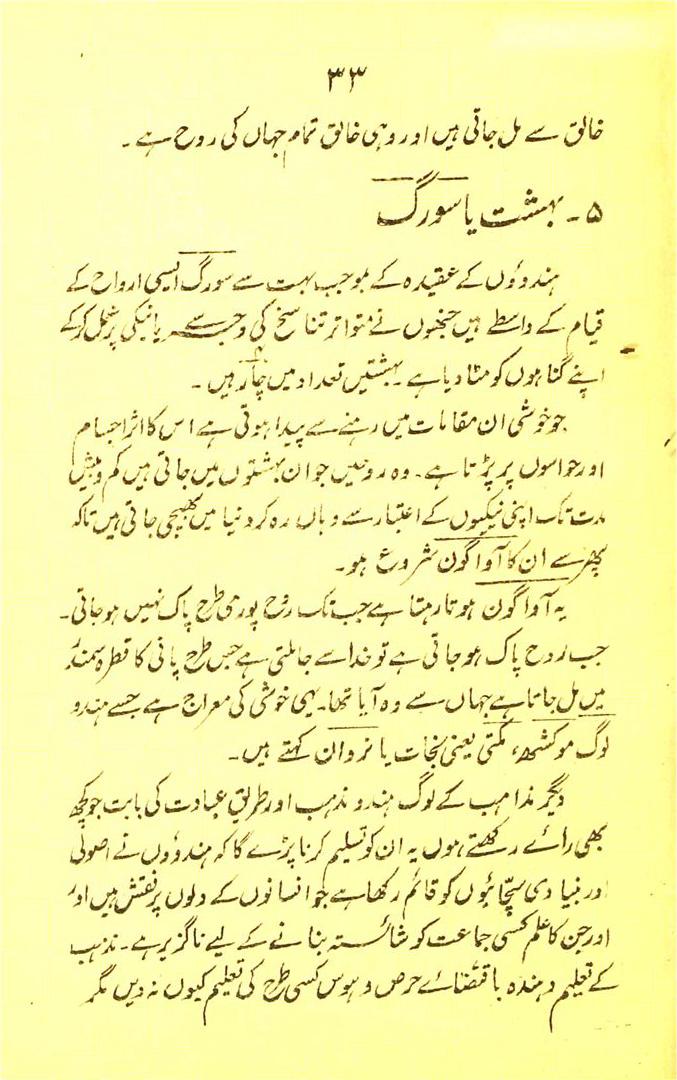 ۳۳
خالق سے مل جاتی ہیں اور وہی خالق تمام جہاں کی روح ہے۔
۵۔ بہشت یا سورگ
ہندوؤں کے عقیدہ کے بموجب بہت سے سورگ ایسی ارواح کے
قیام کے واسطے ہیں جنھوں نے متواتر تناسخ کی وجہ سے یا نیکی پر عمل کر کے
اپنے گناہوں کو مٹا دیا ہے۔ بہشتیں تعداد میں چار ہیں۔
جو خوشی ان مقامات میں رہنے سے پیدا ہوتی ہے اس کا اثر اجسام
اور حواسوں پر پڑتا ہے۔ وہ روحیں جو ان بہشتوں میں جاتی ہیں کم و بیش
مدت تک اپنی نیکیوں کے اعتبار سے وہاں رہ کر دنیا میں بھیجی جاتی ہیں تاکہ
پھر سے ان کا آواگون شروع ہو۔
یہ آواگون ہوتا رہتا ہے جب تک روح پوری طرح پاک نہیں ہو جاتی۔
جب روح پاک ہو جاتی ہے تو خدا سے جا ملتی ہے جس طرح پانی کا قطرہ سمندر
میں مل جاتا ہے جہاں سے وہ آیا تھا۔ یہی خوشی کی معراج ہے جسے ہندو
لوگ موکشھ، مکتی یعنی نجات یا نروان کہتے ہیں۔
دیگر مذاہب کے لوگ ہندو مذہب اور طریق عبادت کی بابت جو کچھ
بھی رائے رکھتے ہوں یہ ان کو تسلیم کرنا پڑے گا کہ ہندوؤں نے اصولی
اور بنیادی سچائیوں کو قائم رکھا ہے جو انسانوں کے دلوں پر نقش ہیں اور
اور جن کا علم کسی جماعت کو شائستہ بنانے کے لیے ناگزیر ہے۔ مذہب
کے تعلیم دہندہ باقتضائے حرص و ہوس کسی طرح کی تعلیم کیوں نہ دیں مگر